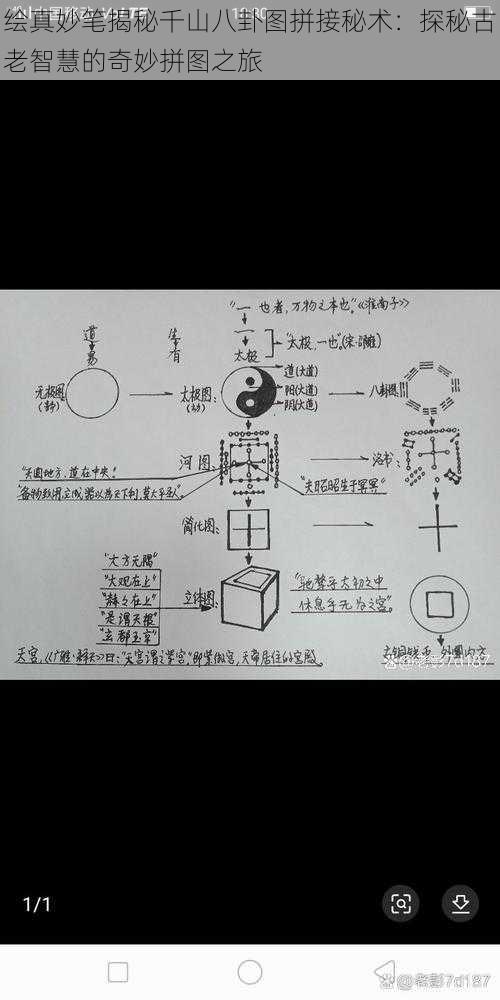 绘真妙笔揭秘千山八卦图拼接秘术：探秘古
老智慧的奇妙拼图之旅
“一也者，万物之本也。”《淮南子》
一
太极
“太极，一也。”(宋·邵雍)
道
易
生
有
无极图
(静)
太极图：
(动)
道(大道)
阳(大道)
阴(大道)
八卦图
河图：
洛书：
“天圆地方，道在中央！
“备物致用，立成器以为天下利，莫大乎圣人”。
“夫昭昭生于冥冥”
简化图：
“大方无隅”
“大观在上”
“赫赫在上”
“是谓天根”
“玄都玉京”
立体图：
“驰骛乎太初之中
休息乎无为之宫”。
天宫，《广雅·释天》曰：“天宫谓之紫宫。”即紫微宫，天帝居住的宫殿。
外圆内方
老彭7d187
1/1
老彭7d187